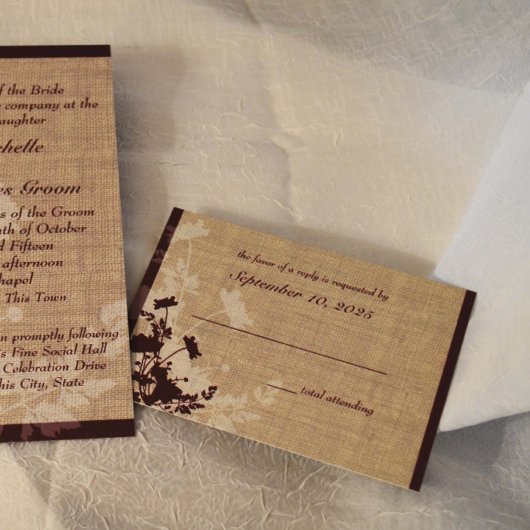 of the Bride
company at the
aughter
chelle
es Groom
s of the Groom
nth of October
d Fifteen
afternoon
hapel
This Town
n promptly following
's Fine Social Hall
Celebration Drive
his City, State
the favor of a reply is requested by
September 10, 2025
total attending